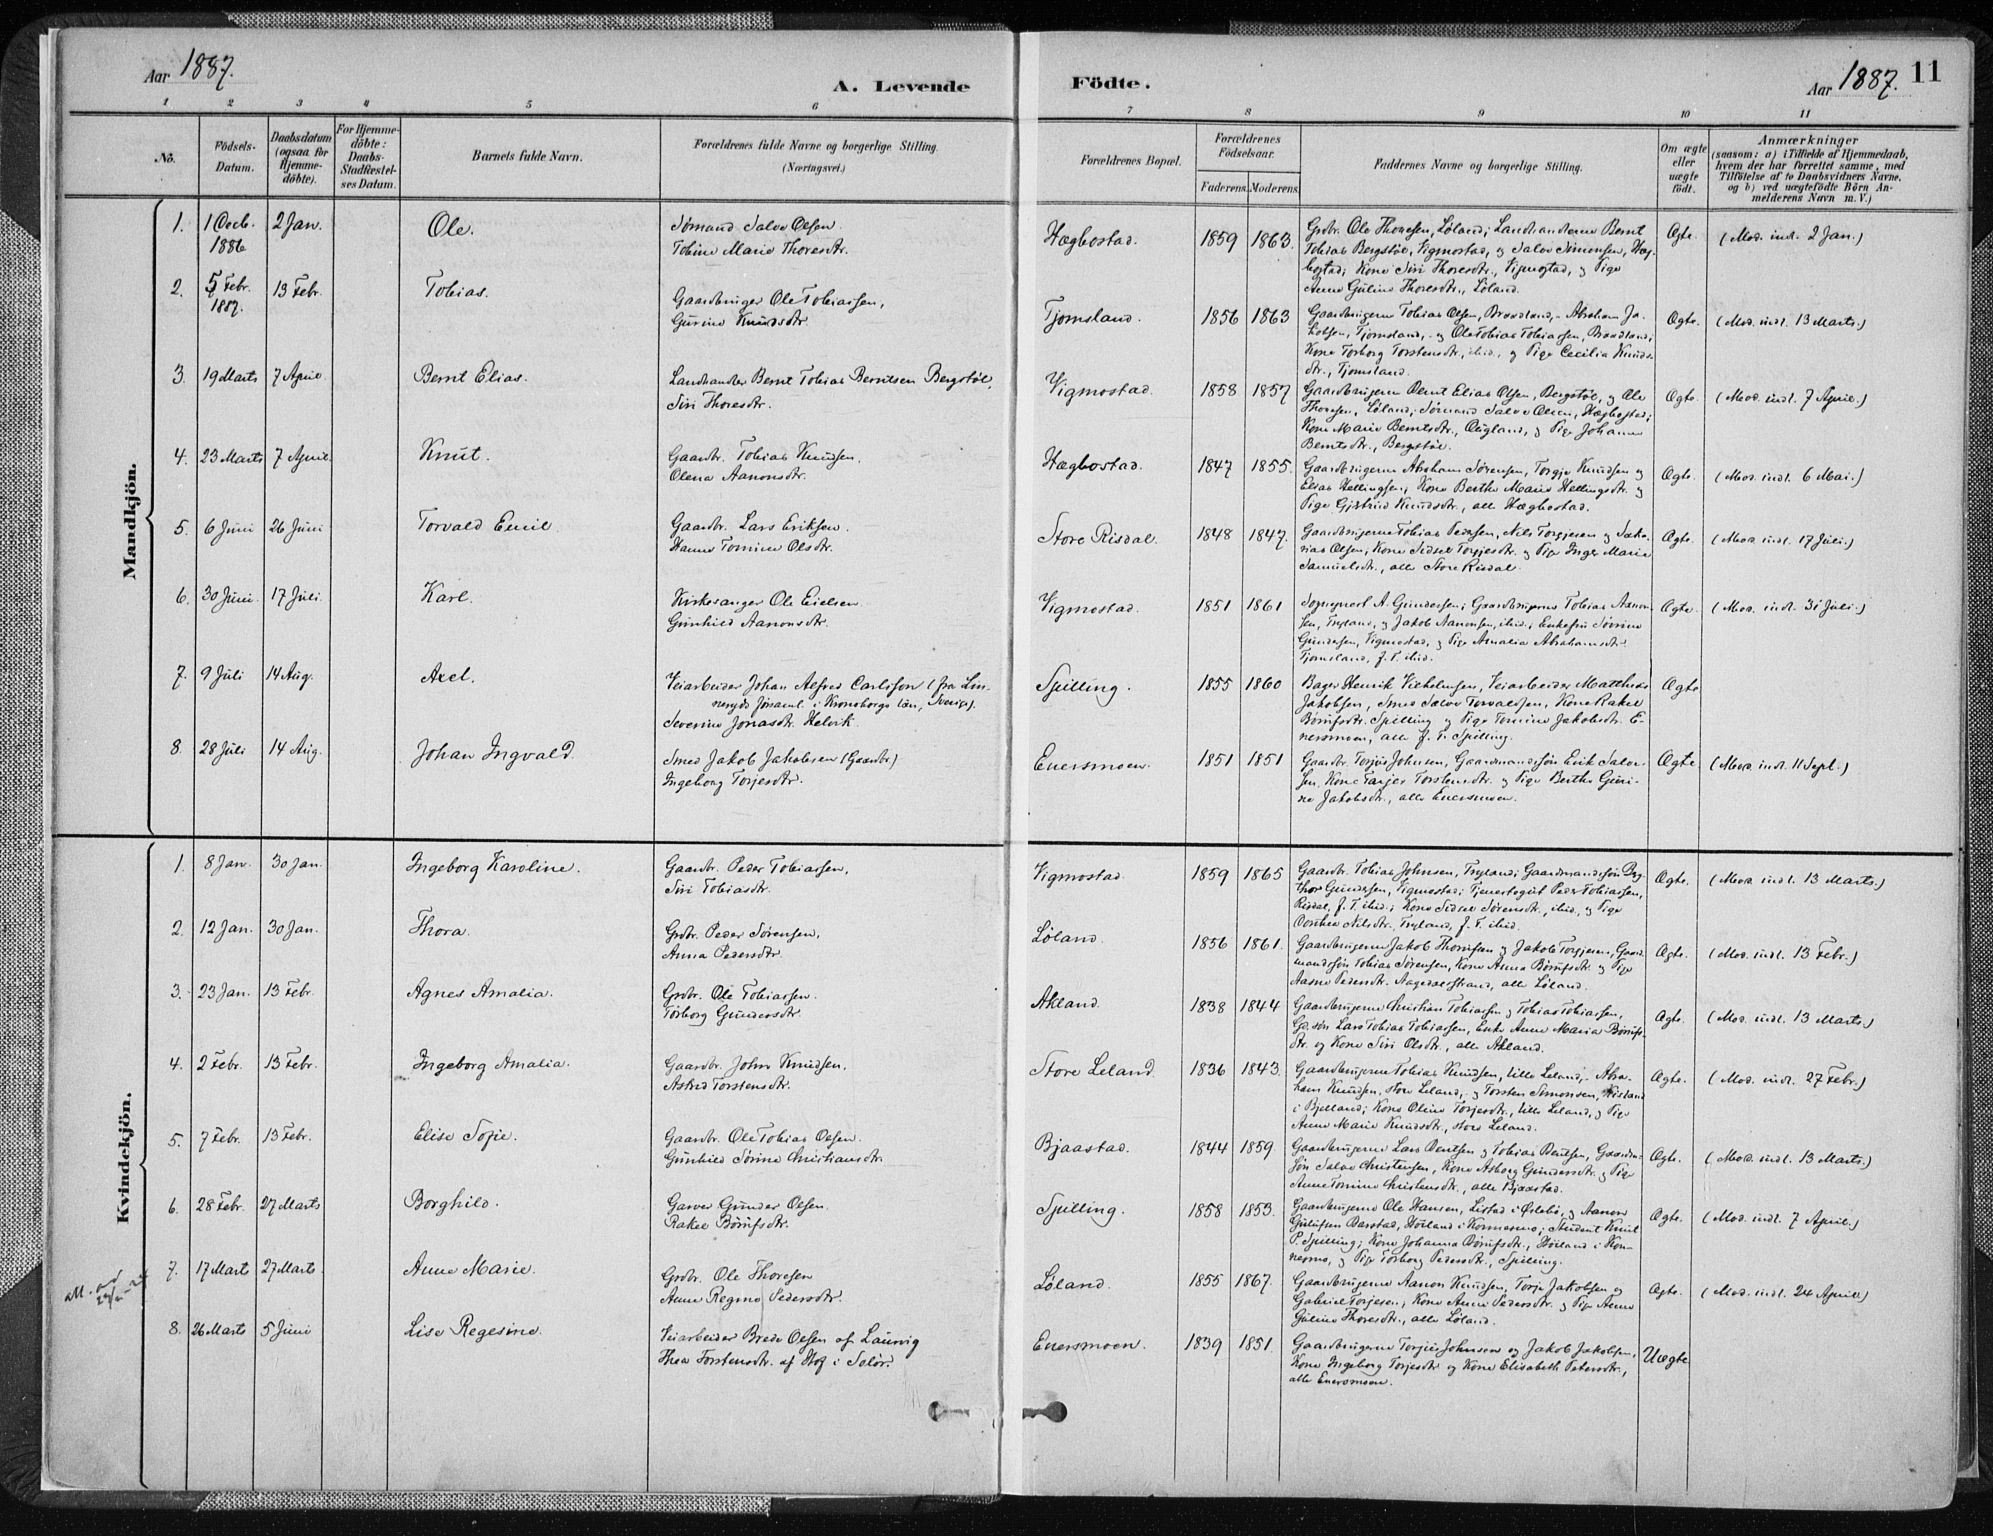 Aar 1887.
A. Levende
Födte.
Aar 1887.
11
1 2 3 4 5 6
7 8 9 10 11
No.
Födsels-
Datum.
Daabsdatum
(ogsaa for
Hjemme-
döbte).
For Hjemme-
döbte:
Daabs-
Stadfæstel-
ses Datum.
Barnets fulde Navn.
Forældrenes fulde Navne og borgerlige Stilling.
(Næringsvei.)
Forældrenes Bopæl.
Forældrenes
Födselsaar.
Faderens. Moderens.
Faddernes Navne og borgerlige Stilling.
Om ægte
eller
uægte
födt.
Anmærkninger
(saasom: a) i Tilfælde af Hjemmedaab,
hvem der har forrettet samme, med
Tilföielse af to Daabsvidners Navne,
og b) ved uægtefödte Börn An-
melderens Navn m. V.)
Mandkjön.
1. 1 Decb. 1886 2 Jan. Ole.
Sørmund Salve Olsen.
Tobine Marie Thoresdtr.
Hægbostad. 1859 1863.
Grdbr. Ole Thoresen, Løland; Landhandlerne Bernt
Tobias Bergstøl, Vigmostad, og Salve Simonsen, Hæg-
bostad; Kone Siri Thoresdtr., Vigmostad, og Pige
Anne Guline Thoresdtr., Løland.
Ægte. (Mod. indl. 2 Jan.)
2. 5 Febr. 1887. 13 Febr. Tobias.
Gaardbruger Ole Tobiassen,
Gurine Knudsdtr
Tjomsland. 1856 1863
Gaardbrugerne Tobias Olsen, Brandland, Abraham Ja-
kobsen, Tjomsland, og Ole Tobias Tobiassen, Brandland;
Kone Torborg Torstensdtr., ibid., og Pige Cecilia Knuds-
dtr., Tjomsland.
Ægte. (Mod. indl. 13 Marts.)
3. 19 Marts 7 April Bernt Elias.
Landhandler Bernt Tobias Berntsen Bergstøl,
Siri Thoresdtr.
Vigmostad. 1858 1857
Gaardbrugerne Bernt Elias Olsen, Bergstøl, og Ole
Thoresen, Løland; Sørmund Salve Olsen, Hægbostad;
Kone Marie Berntsdtr., Øigland, og Pige Johanne
Berntsdtr., Bergstøl.
Ægte. (Mod. indl. 7 April.)
4. 23 Marts 7 April. Knut.
Gaardbr. Tobias Knudsen.
Olena Aanonsdtr.
Hægbostad. 1847 1855.
Gaardbrugerne Abraham Sørensen, Torgje Knudsen og
Elias Hellingsen; Kone Berthe Marie Hellingsdtr. og
Pige Gjertrud Knudsdtr., alle Hægbostad.
Ægte. (Mod. indl. 6 Mai.)
5. 6 Juni 26 Juni Torvald Emil.
Gaardbr. Lars Eriksen.
Hanne Tomine Olsdtr.
Store Risdal. 1848 1847.
Gaardbrugerne Tobias Pedersen, Nils Torgjesen og Saka-
rias Olsen; Kone Sidsel Torgjesdtr. og Pige Inger Marie
Samuelsdtr., alle Store Risdal.
Ægte. (Mod. indl. 17 Juli.)
6. 30 Juni. 17 Juli. Karl.
Kirkesanger Ole Eielsen
Gunhild Aanonsdtr.
Vigmostad. 1851 1861
Sogneprest A. Gundersen; Gaardbrugerne Tobias Aanon-
sen, Tryland, og Jakob Aanonsen, ibid.; Enkefru Sørine
Gundersen, Vigmostad, og Pige Amalia Abrahamsdtr.
Tjomsland, f. T. ibid.
Ægte. (Mod. indl. 31 Juli.)
7. 9 Juli 14 Aug. Axel.
Veiarbeider Johan Alfred Carlsson (fra Lin-
neryds församl. i Kronobergs län, Sverige).
Severine Jonasdtr. Helvik.
Spilling. 1855 1860
Bager Henrik Vilhelmsen, Veiarbeider Matthias
Jakobsen, Smed Salve Torvaldsen, Kone Rakel
Børufsdtr. Spilling og Pige Tomine Jakobsdtr. E-
nersmoen, alle f. T. Spilling.
Ægte
8. 28 Juli 14 Aug. Johan Ingvald.
Smed Jakob Jakobsen (Gaardbr.)
Ingeborg Torjesdtr.
Enersmoen. 1851 1851
Gaardbr. Torjus Johnsen, Gaardmandssøn Erik Salve-
sen, Kone Tarjer Torstensdtr. og Pige Berthe Guri-
ne Jakobsdtr., alle Enersmoen.
Ægte (Mod. indl. 11 Sept.)
Kvindekjön.
1. 8 Jan. 30 Jan. Ingeborg Karoline.
Gaardbr. Peder Tobiassen,
Siri Tobiasdtr.
Vigmostad. 1859 1865
Gaardbr. Tobias Johnsen, Tryland; Gaardmandssøn
Gundersen, Vigmostad; Tjenestegut Peder Tobiassen,
Risdal, f. T. ibid.; Kone Sidsel Sørensdtr., ibid., og Pige
Dorthea Nilsdtr., Tryland, f. T. ibid.
Ægte. (Mod. indl. 13 Marts.)
2. 12 Jan. 30 Jan. Thora.
Grdbr. Peder Sørensen,
Anna Pedersdtr.
Løland. 1856 1861.
Gaardbrugerne Jakob Thorufsen og Jakob Torgjesen, Gaard-
mandssøn Tobias Sørensen, Kone Anna Børufsdtr. og Pige
Aasne Pedersdtr. Aagedalstrand, alle Løland.
Ægte. (Mod. indl. 13 Febr.)
3. 23 Jan. 13 Febr. Agnes Amalia.
Grdbr. Ole Tobiassen.
Torborg Gundersdtr.
Akland. 1838 1844
Gaardbrugerne Christian Tobiassen og Tobias Tobiassen,
Gd.søn Lars Tobias Tobiassen, Enke Anne Maria Børufs-
dtr. og Kone Siri Olsdtr., alle Akland.
Ægte. (Mod. indl. 13 Marts.)
4. 2 Febr. 13 Febr. Ingeborg Amalia.
Gaardbr. John Knudsen,
Astrid Torstensdtr.
Store Leland 1836 1843.
Gaardbrugerne Tobias Knudsen, Lille Leland, Abra-
ham Knudsen, store Leland, og Torsten Simonsen,
i Bjelland; Kone Oline Torjesdtr., Lille Leland, og Pige
Anne Marie Knudsdtr., store Leland.
Ægte. (Mod. indl. 27 Febr.)
5. 7 Febr. 13 Febr. Elise Sofie.
Gaardbr. Ole Tobias Olsen.
Gunhild Sørine Christiansdtr.
Bjaastad. 1844 1859.
Gaardbrugerne Lars Berntsen og Tobias Berntsen, Gaardm.-
søn Salve Christensen, Kone Asborg Gundersdtr. og Pige
Anne Tomine Christensdtr., alle Bjaastad.
Ægte. (Mod. indl. 13 Marts.)
6. 28 Febr. 27 Marts Borghild.
Garver Gunder Olsen.
Rakel Børufsdtr.
Spilling. 1858 1853.
Gaardbrugerne Ole Hansen, Listad i Øslebø, og Aanon
Gulufsen Hørland i Konnesmo; Student Knut
P. Spilling; Kone Johanna Børufsdtr., Hørland i Kon-
nesmo, og Pige Torborg Pedersdtr., Spilling.
Ægte. (Mod. indl. 7 April)
7. 17 Mart 27 Marts. Anne Marie.
Grdbr. Ole Thoresen
Anne Regine Pedersdtr.
Løland. 1855 1867.
Gaardbrugerne Aanon Knudsen, Torje Jakobsen og
Gabriel Torjesen; Kone Anne Pedersdtr. og Pige Anne
Guline Thoresdtr., alle Løland.
Ægte. (Mod. indl. 24 April.)
8. 26 Marts 5 Juni Lise Regesine.
Veiarbeider Brede Olsen af Laurvig
Thea Torstensdtr. af Hof i Solør.
Enersmoen. 1839 1851.
Gaardbrugerne Torjus Johnsen og Jakob Jakobsen,
Kone Ingeborg Torjesdtr og Kone Elisabeth Petersdtr.,
alle Enersmoen.
Uægte